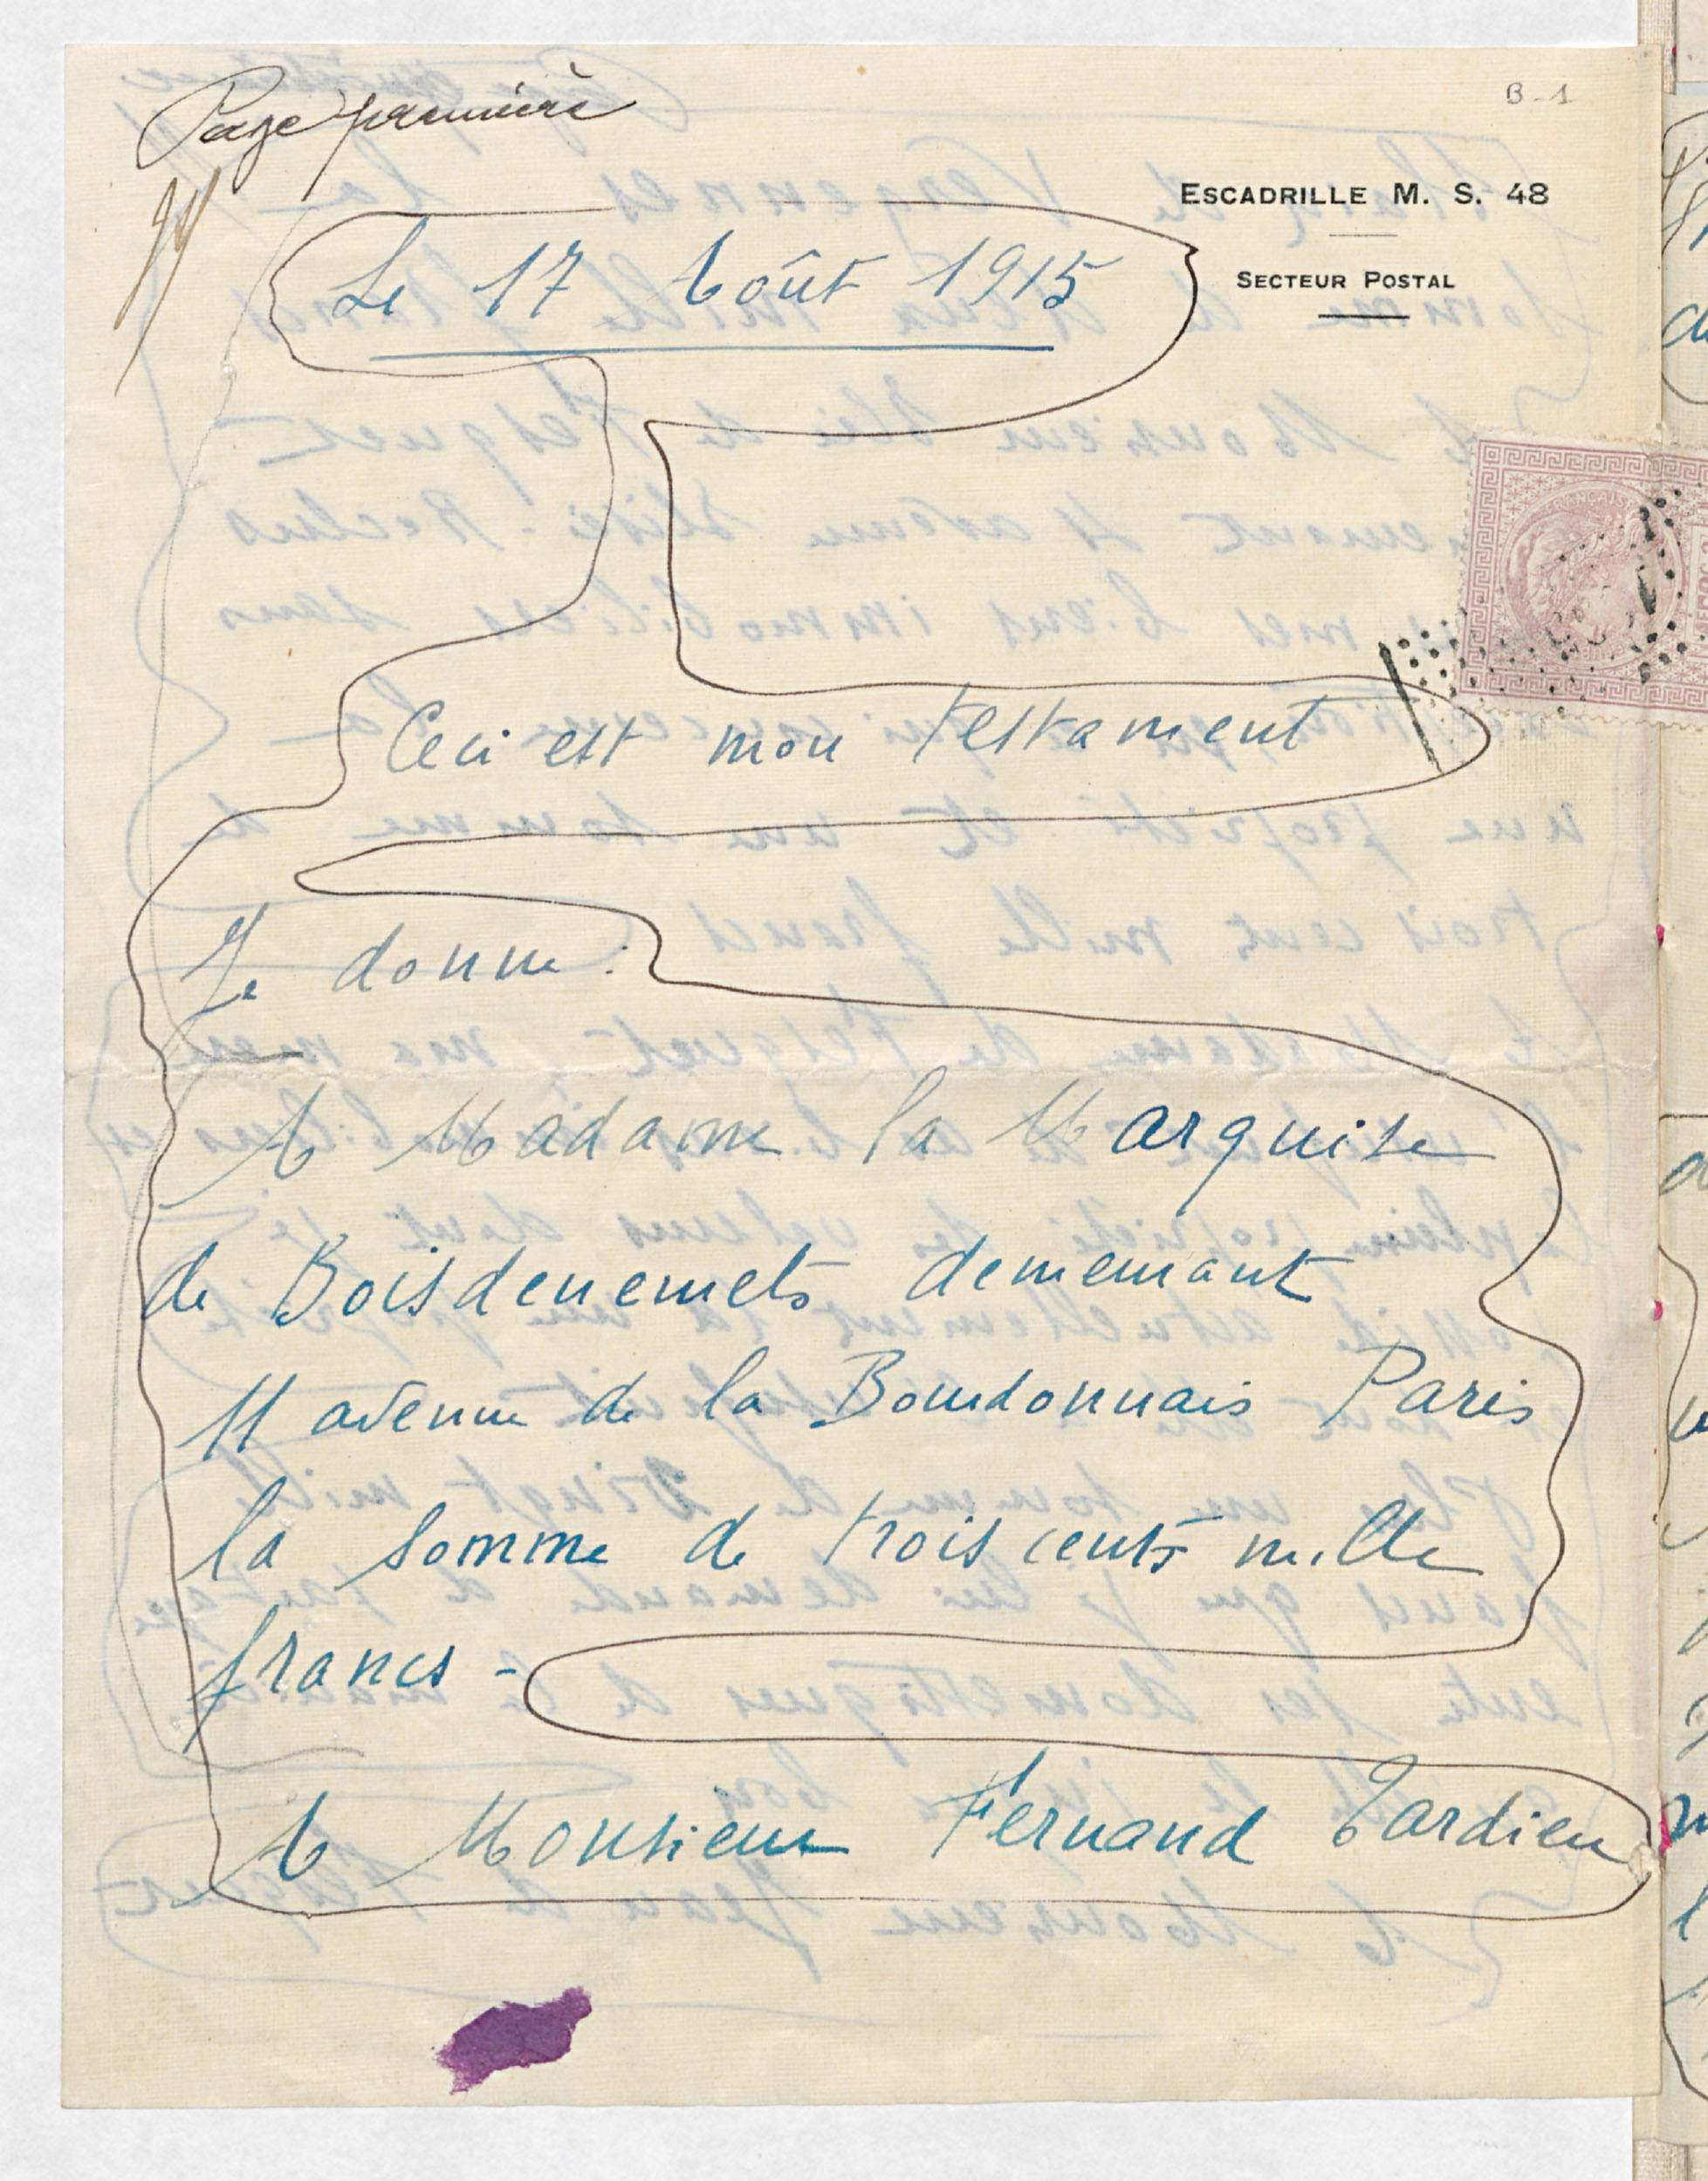 Page première
B-1
ESCADRILLE M. S. 48
SECTEUR POSTAL
Le 17 Août 1915
Ceci est mon testament
Je donne :
A Madame la Marquise
de Boisdenemets demeurant
11 avenue de la Bourdonnais Paris
la somme de trois cents mille
francs -
A Monsieur Fernand Tardieu